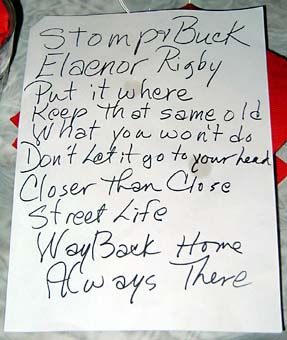 Stomp & Buck
Elaenor Rigby
Put it where
Keep that same old
What you won't do
Don't Let it go to your head
Closer Than Close
Street Life
Way Back Home
Always There